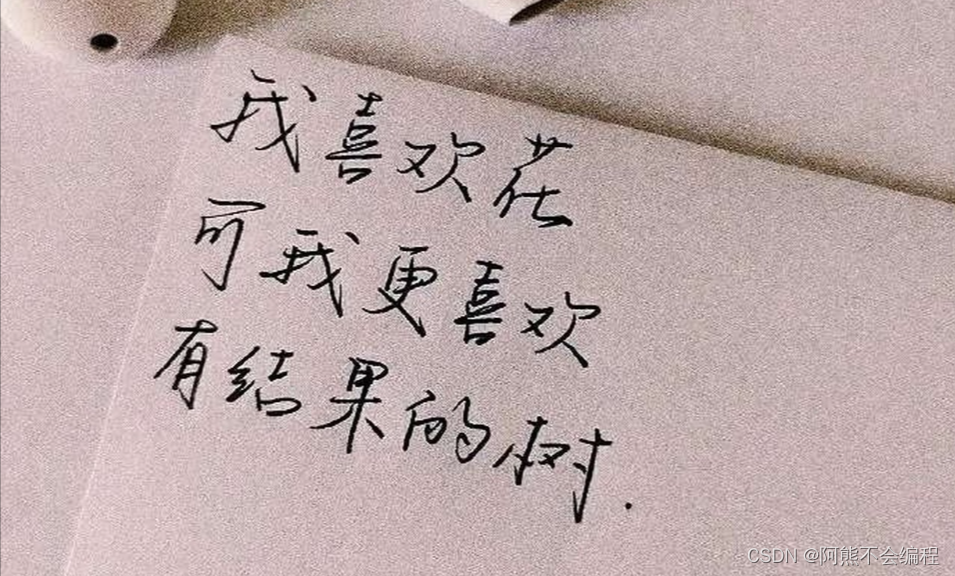 我喜欢花
可我更喜欢
有结果的树.
CSDN @阿熊不会编程